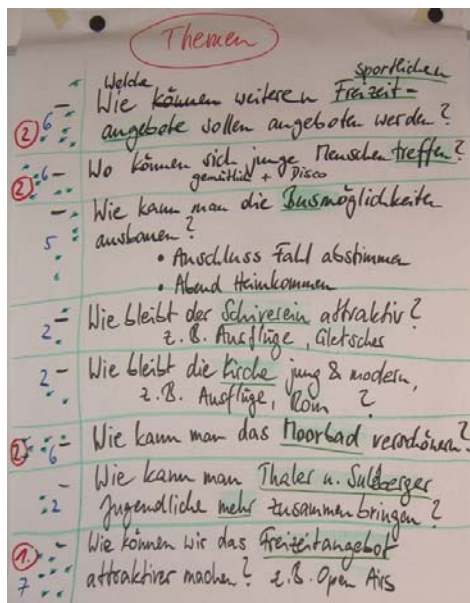 Themen
Welche sportlichen
Wie können weiteren Freizeit-
2. 6 angebote sollen angeboten werden?
2. 6 Wo können sich junge Menschen treffen?
gemütlich + Disco
Wie kann man die Busmöglichkeiten
5 ausbauen?
• Anschluss Fahl abstimmen
• Abend Heimkommen
2 Wie bleibt der Schiverein attraktiv?
z.B. Ausflüge, Gletscher
2 Wie bleibt die Kirche jung & modern,
z.B. Ausflüge, Rom ?
2. 6 Wie kann man das Moorbad verschönern?
Wie kann man Thaler u. Sulzberger
2 Jugendliche mehr zusammenbringen?
1. Wie können wir das Freizeitangebot
7 attraktiver machen? z.B. Open Airs